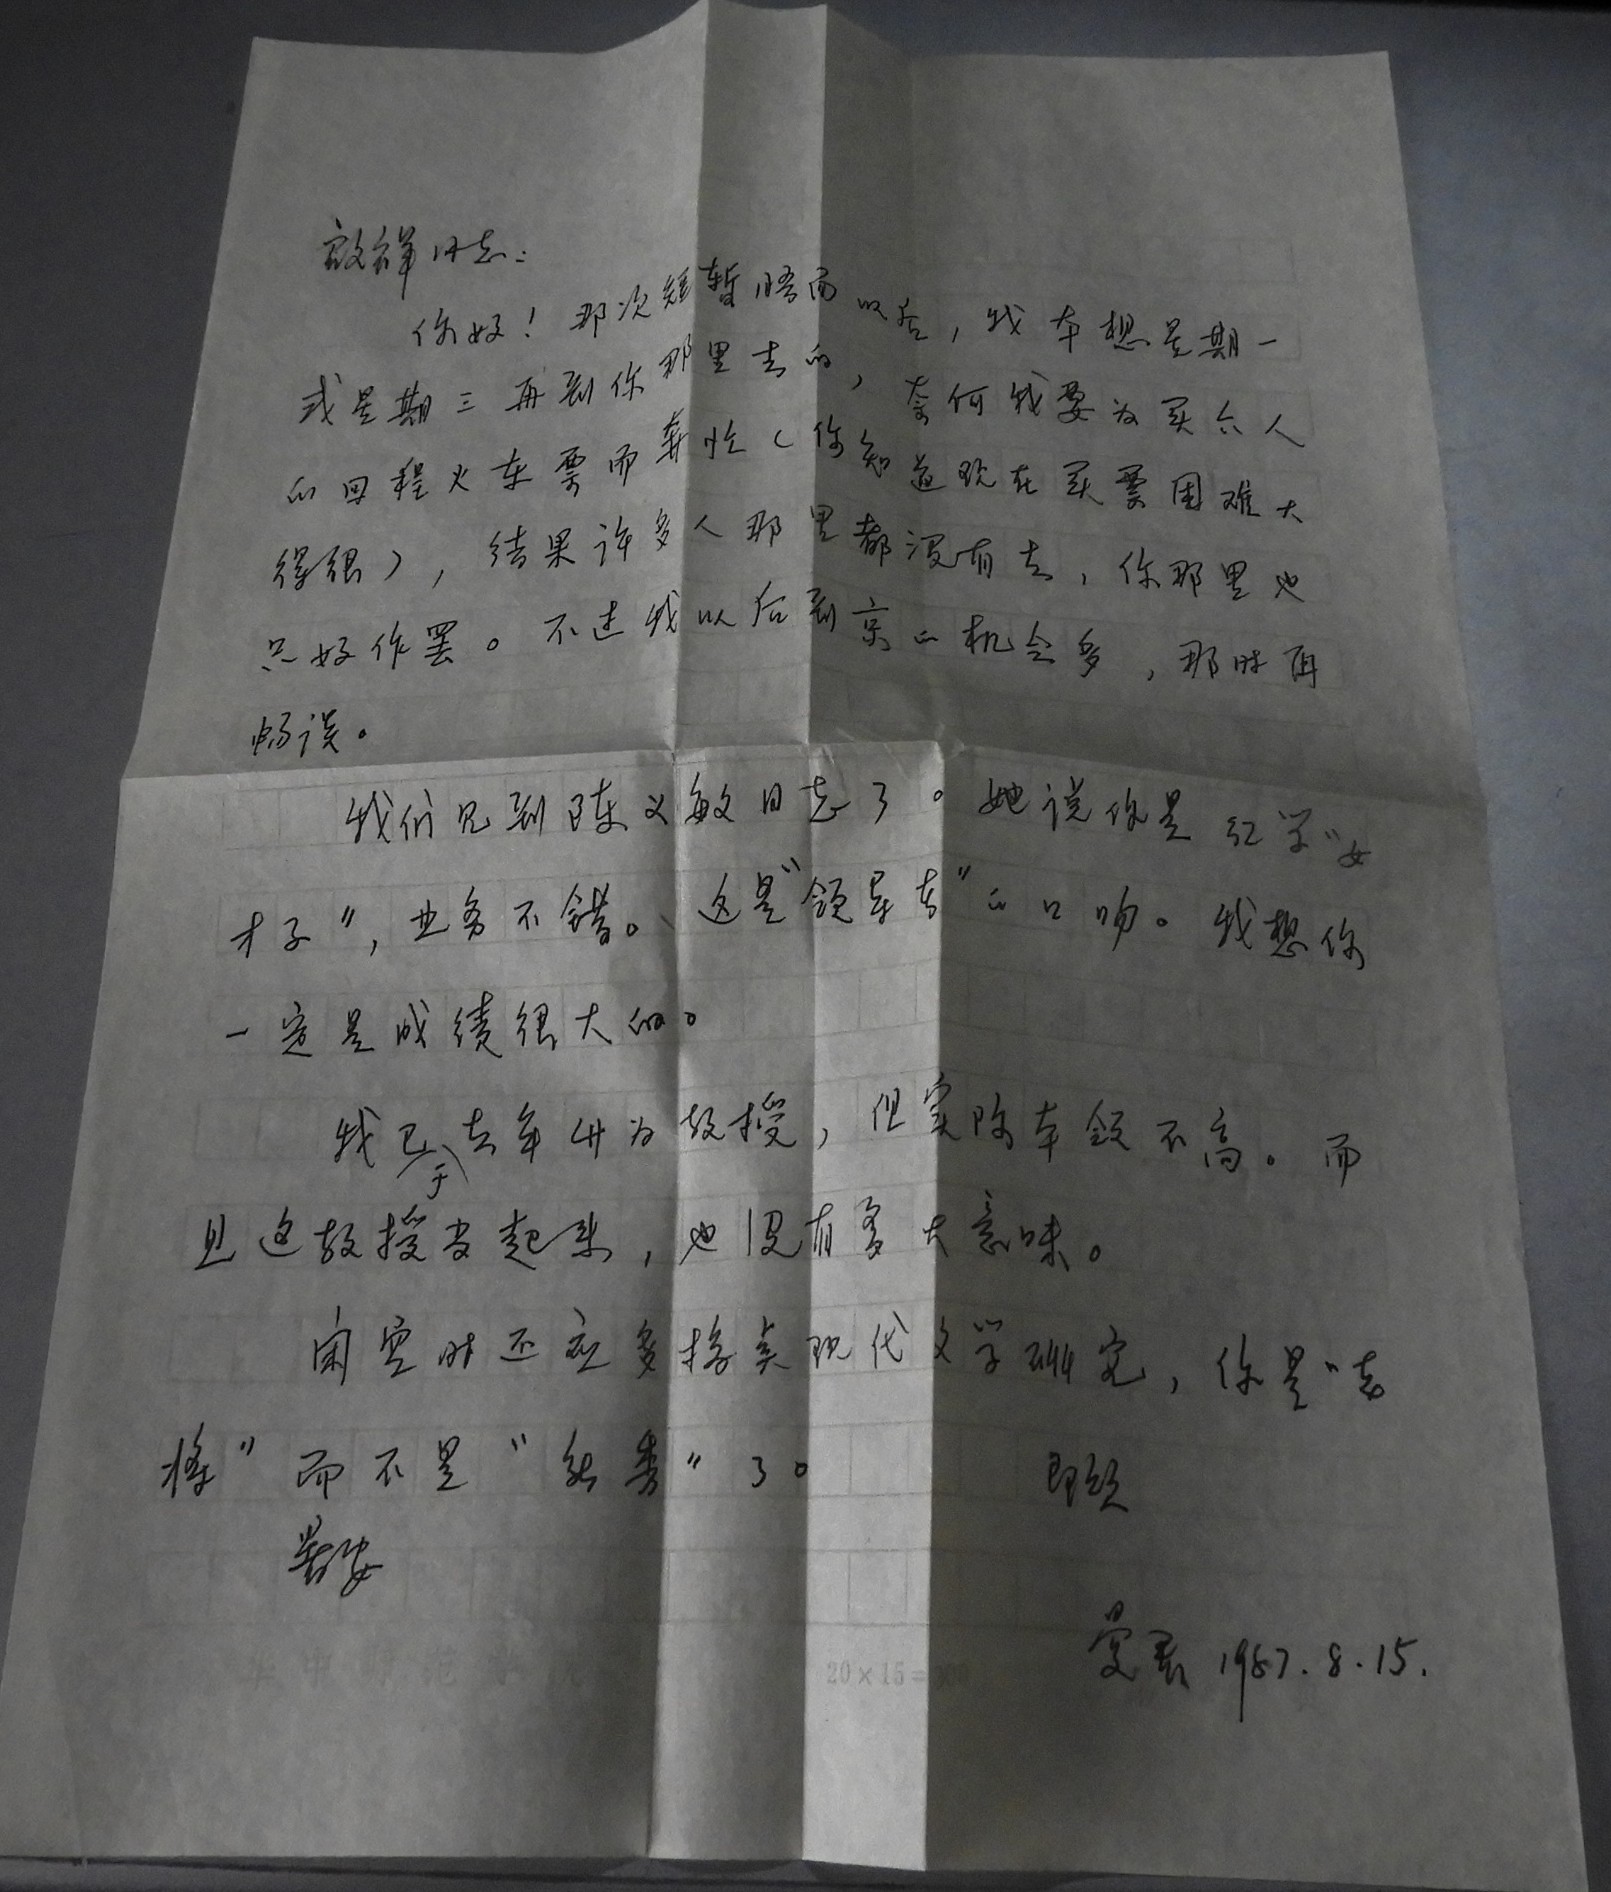 启祥同志：
你好！那次短暂晤面以后，我本想星期一
或星期三再到你那里去的，奈何我要为买六人
的回程火车票而奔忙（你知道现在买票困难大
得很），结果许多人那里都没有去，你那里也
只好作罢。不过我以后到京的机会多，那时再
畅谈。
我们见到陈义敏同志了。她说你是红学“女
才子”，业务不错。这是“领导者”的口吻。我想你
一定是成绩很大的。
我已于去年升为教授，但实际本领不高。而
且这教授当起来，也没有多大意味。
闲空时还应多搞点现代文学研究，你是“老
将”而不是“新秀”了。 即颂
著安
1987.8.15.
华中师范学院 20×15=300